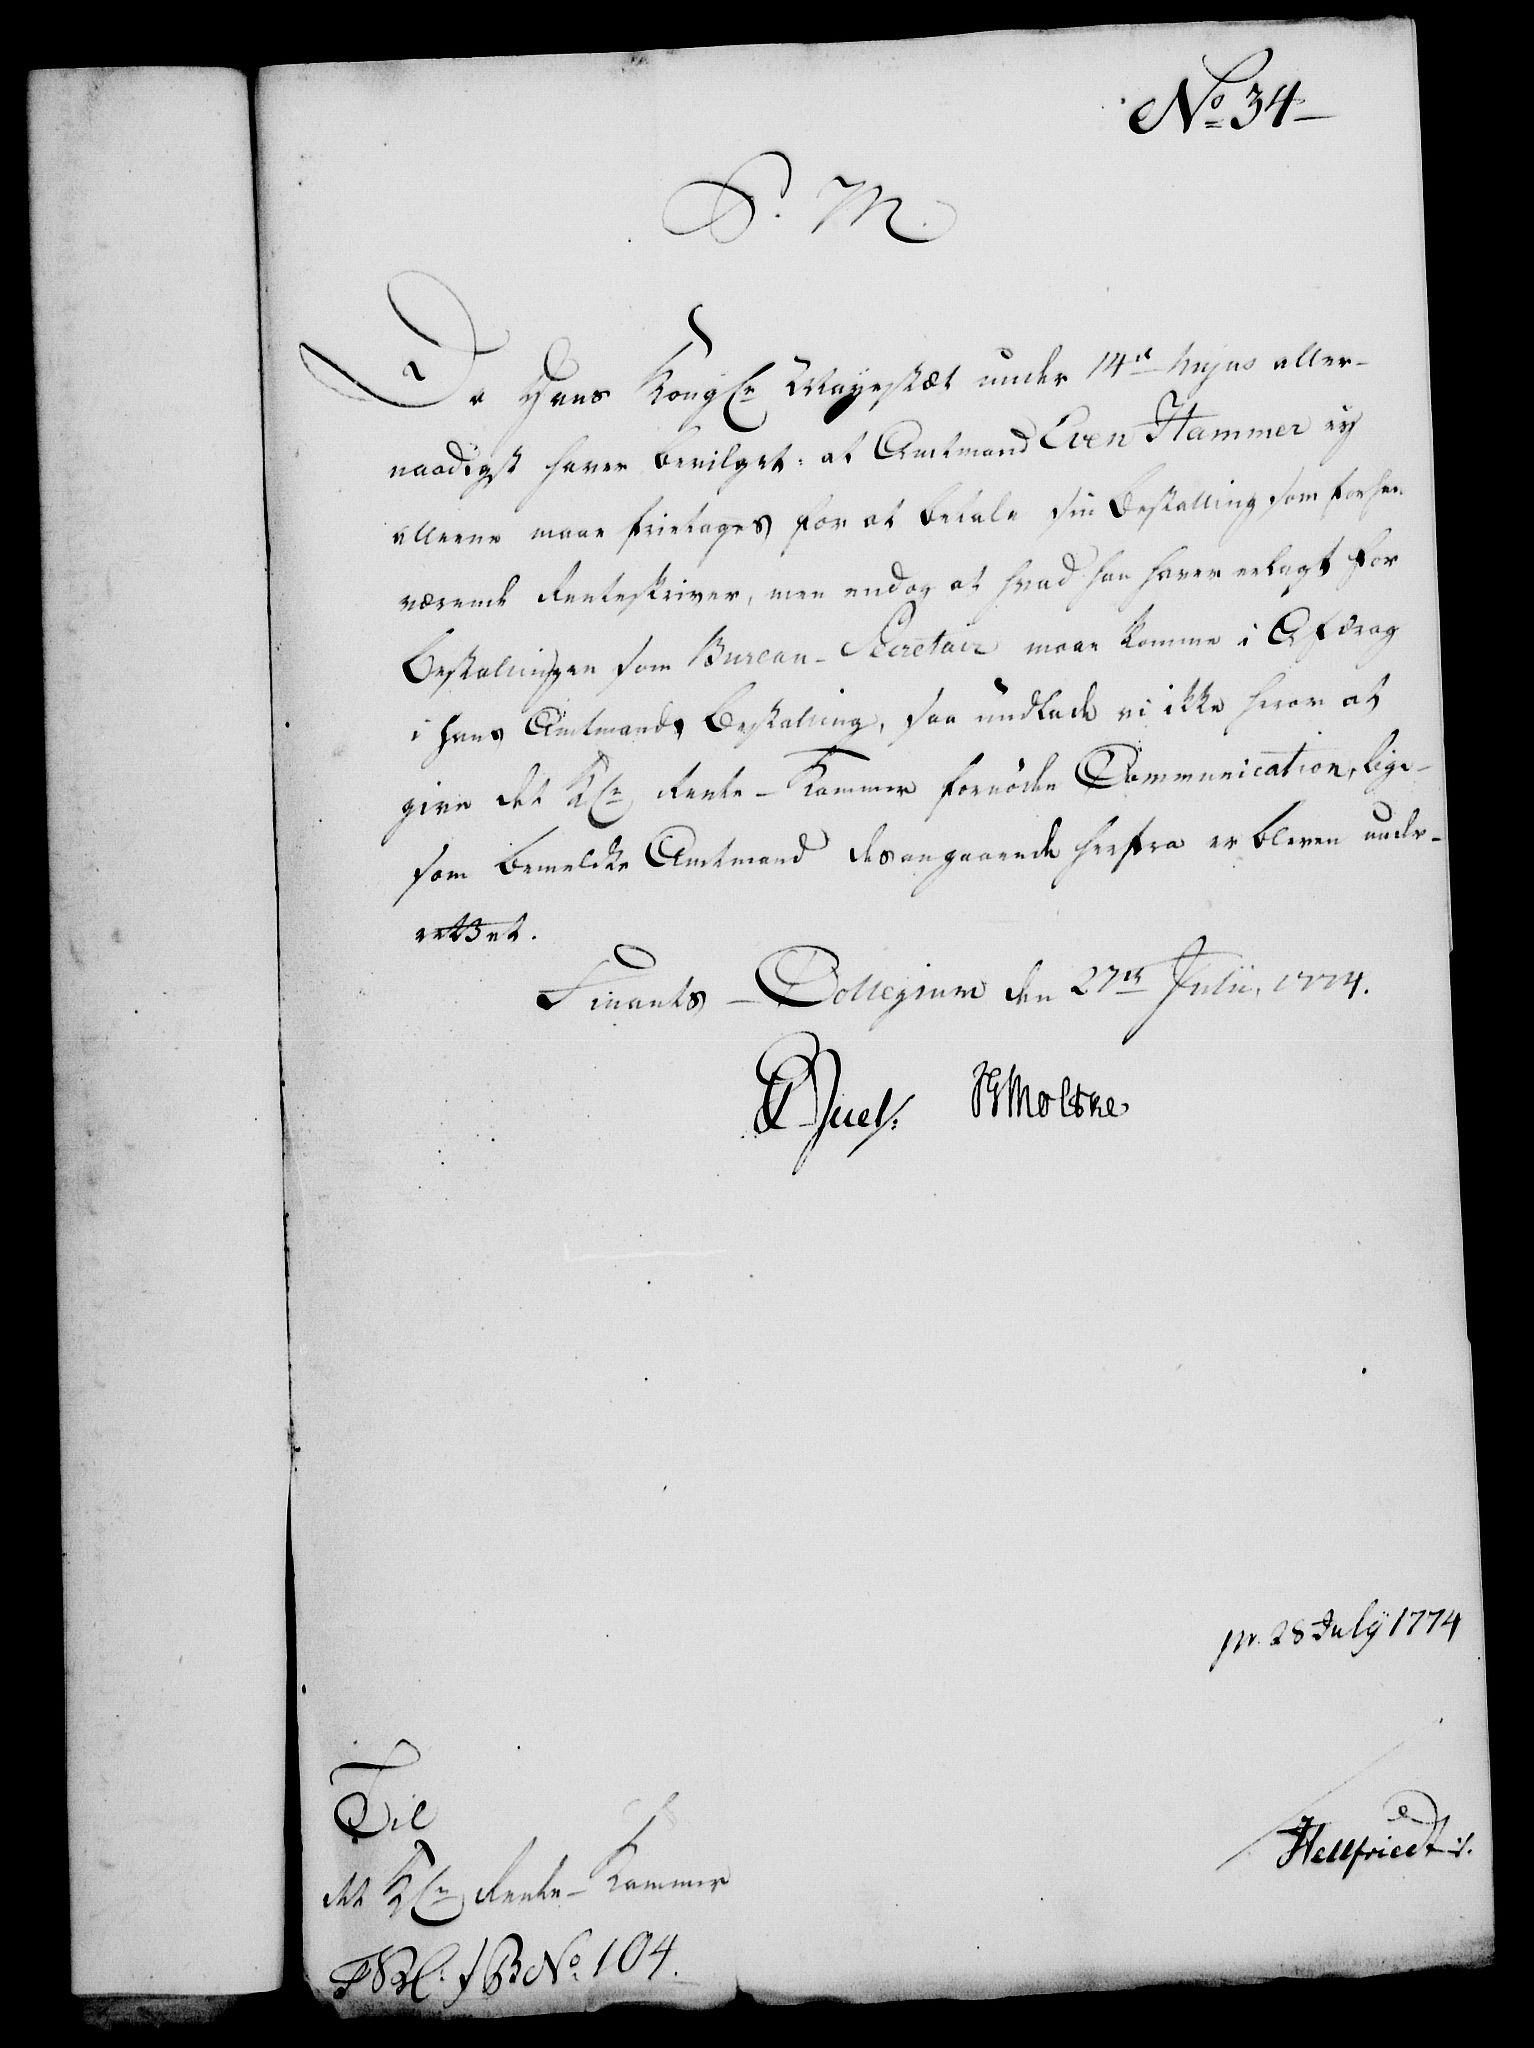 No 34
P. M.
Da Hans Kongl. Mayestæt under 14de hujus aller-
naadigst haver bevilget: at Amtmand Even Hammer ey
alleene maae frietages for at betale sin Bestalling som forhen
værende Renteskriver, men endog at hvad han haver erlagt for
Bestallingen som Bureau-Secretair maae komme i Afdrag
i hans Amtmands Bestalling, saa undlade vi ikke herom at
give det Kgl. Rente-Kammer fornöden Communication, lige-
som bemeldte Amtmand desangaaende herfra er bleven under-
rettet.
Finants-Collegium den 27de Julii, 1774.
Juel. Moltke
pr. 28 July 1774
Til
det Kgl. Rente-Kammer
Hellfriedt
No 104.